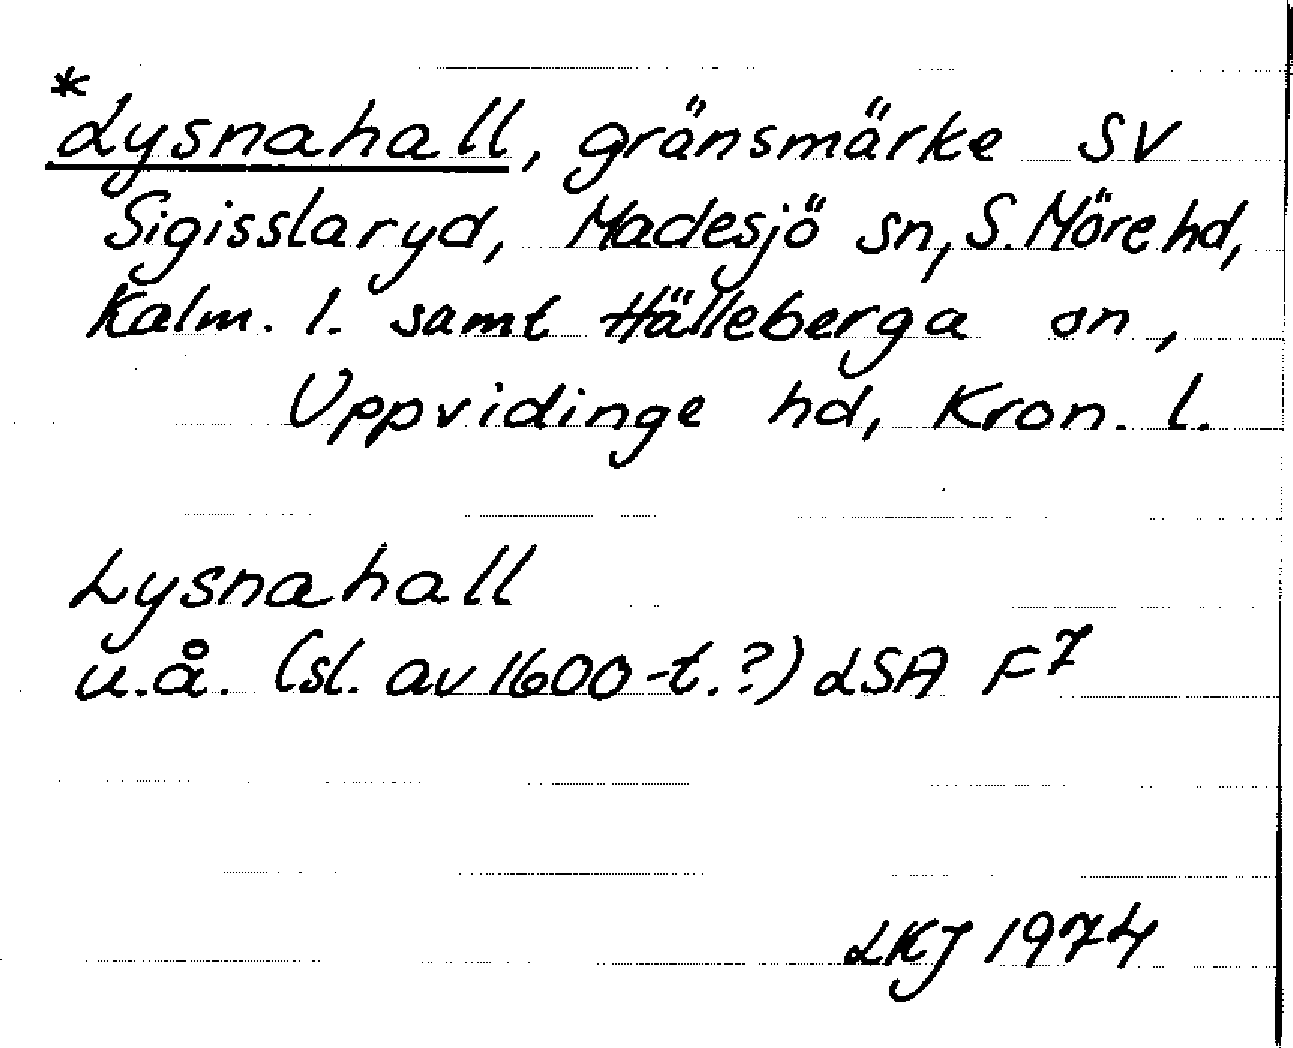 *Lysnahall, gränsmärke SV
Sigisslaryd, Madesjö sn, S. Möre hd,
Kalm. l. samt Hälleberga sn,
Uppvidinge hd, Kron. l.
Lysnahall
u.å. (sl. av 1600-t.?) LSA F7
LKJ 1974